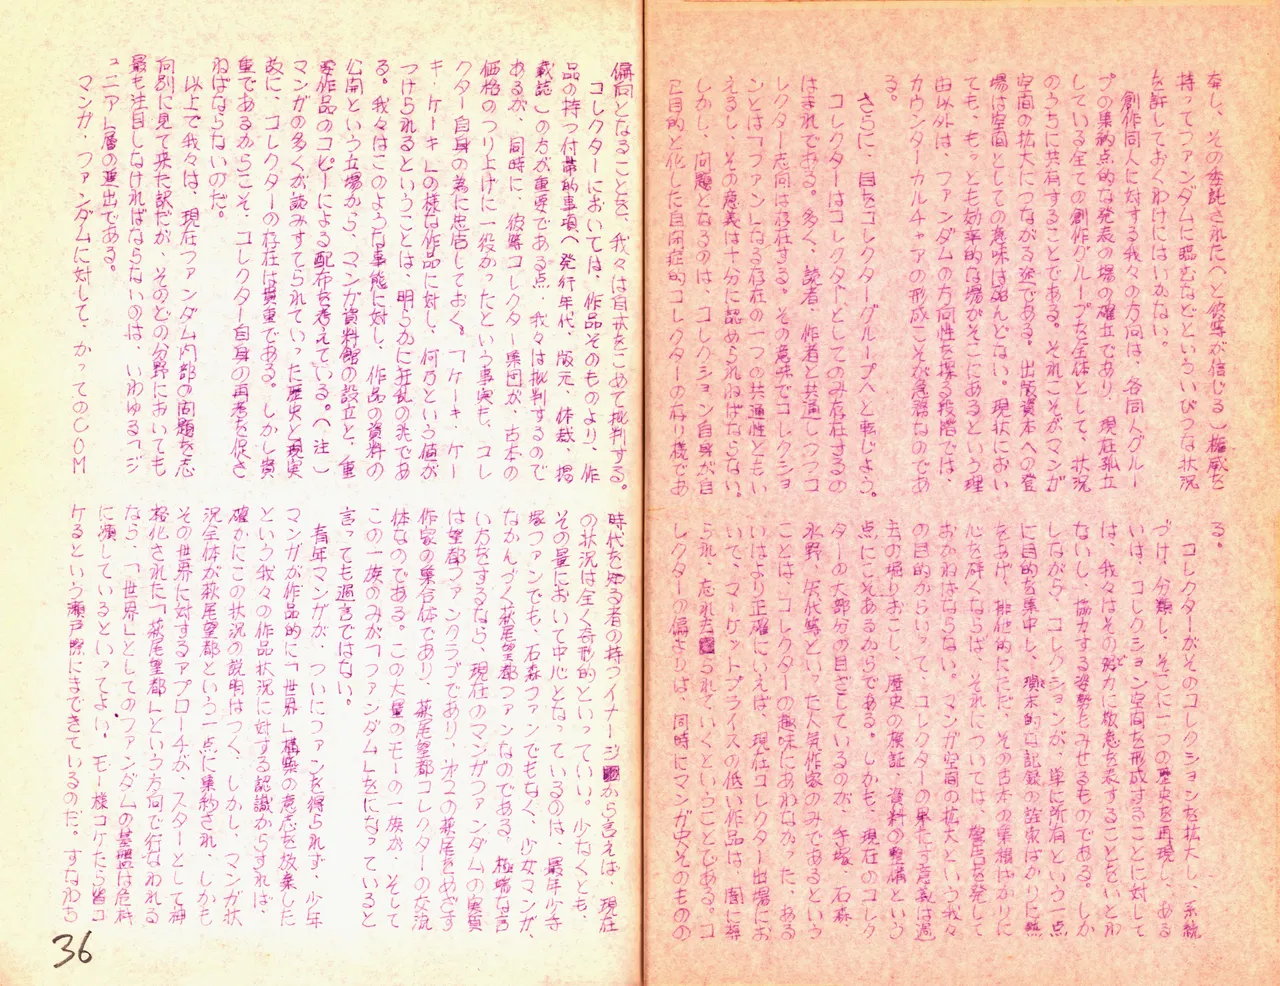 有し、その委託された(と彼等が信じる)権威を
持ってファンダムに臨むなどといういびつな状況
を許しておくわけにはいかない。
創作同人に対する我々の方向は、各同人グルー
プの集約点的な発表の場の確立であり、現在孤立
している全ての創作グループを全体として、状況
のうちに共有することである。それこそがマンガ
空間の拡大につながる途である。出版資本への登
場は空間としての意味は殆んどない。現状におい
ても、もっとも効率的な場がそこにあるという理
由以外は、ファンダムの方向性を探る段階では、
カウンターカルチャアの形成こそが急務なのであ
る。
さらに、目をコレクターグループへと転じよう。
コレクターはコレクターとしてのみ存在するの
はまれである。多く、読者、作者と共通しつつコ
レクター志向は存在する。その意味でコレクショ
ンとは「ファン」なる存在の一つの共通性ともい
えるし、その意義は十分に認められねばならない。
しかし、問題となるのは、コレクション自身が自
己目的と化した自閉症的コレクターの在り様であ
る。
コレクターがそのコレクションを拡大し、系統
づけ、分類し、そこに一つの歴史を再現し、ある
いは、コレクション空間を形成することに対して
は、我々はその努力に敬意を表することをいとわ
ないし、協力する姿勢をみせるものである。しか
しながら、コレクションが、単に所有という一点
に目的を集中し、瑣末的な記録の詮索ばかりに熱
をあげ、排他的にただ、その古本の累積ばかりに
心を砕くならば、それについては、警告を発して
おかねばならない。マンガ空間の拡大という我々
の目的からいって、コレクターの果たす意義は過
去の掘りおこし、歴史の検証、資料の整備という
点にこそあるからである。しかも、現在のコレク
ターの大部分の目ざしているのが、手塚、石森、
水野、矢代等といった人気作家のみであるという
ことは、コレクターの趣味にあわなかった、ある
いはより正確にいえば、現在コレクター出場にお
いて、マーケットプライスの低い作品は、闇に葬
られ、忘れ去られていくということである。コ
レクターの偏よりは、同時にマンガ史そのものの
偏向となることを、我々は自状をこめて批判する。
コレクターにおいては、作品そのものより、作
品の持つ付帯的事項(発行年代、版元、体裁、掲
載誌)の方が重要である点、我々は批判するので
あるが、同時に、彼等コレクター集団が、古本の
価格のつり上げに一役かったという事実も、コレ
クター自身の為に忠告しておく。「ケーキ・ケー
キ・ケーキ」の様な作品に対し、何万という値が
つけられるということは、明らかに狂乱の兆であ
る。我々はこのような事態に対し、作品の資料の
公開という立場から、マンガ資料館の設立と、重
要作品のコピーによる配布を考えている。(注)
マンガの多くが読みすてられていった歴史と現実
故に、コレクターの存在は貴重である。しかし貴
重であるからこそ、コレクター自身の再考を促さ
ねばならないのだ。
以上で我々は、現在ファンダム内部の問題を志
向別に見て来た訳だが、そのどの分野においても
最も注目しなければならないのは、いわゆる「ジ
ュニア」層の進出である。
マンガ・ファンダムに対して、かつてのCOM
時代を知る者の持つイメージから言えば、現在
の状況は全く奇形的といっていい。少なくとも、
その量において中心となっているのは、最早少手
塚ファンでも、石森ファンでもなく、少女マンガ、
なかんづく萩尾望都ファンなのである。極端な言
い方をするなら、現在のマンガファンダムの実質
は望都ファンクラブであり、オ2の萩尾をめざす
作家の集合体であり、萩尾望都コレクターの交流
体なのである。この大量のモーの一族が、そして
この一族のみが「ファンダム」をになっていると
言っても過言ではない。
青年マンガが、ついにファンを得られず、少年
マンガが作品的に「世界」構築の意志を放棄した
という我々の作品状況に対する認識からすれば、
確かにこの状況の説明はつく、しかし、マンガ状
況全体が萩尾望都という一点に集約され、しかも
その世界に対するアプローチが、スターとして神
格化された「萩尾望都」という方向で行なわれる
なら、「世界」としてのファンダムの基盤は危機
に瀕しているといってよい。モー様コケたら皆コ
ケるという瀬戸際にまできているのだ。すなわち
36